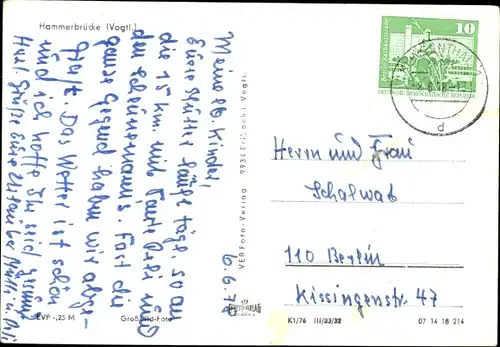 Hammerbrücke (Vogtl.)
Meine lb. Kinder,
Eure Mutter läuft täge. so an
die 15 km mit Tante und
den Schünemanns. Fast die
ganze Gegend haben wir abge-
grast. Das Wetter ist schön
und ich hoffe Ihr seid gesund
Herzl. Grüße Eure
6.6.78
VEB Foto-Verlag 9934 Erlbach i. Vogtl.
EVP -,25 M
Großbild-Foto
10
DEUTSCHE DEMOKRATISCHE REPUBLIK
d
Herrn und Frau
Schalwat
110 Berlin
Kissingenstr. 47
K1/76 III/23/32
07 14 18 214